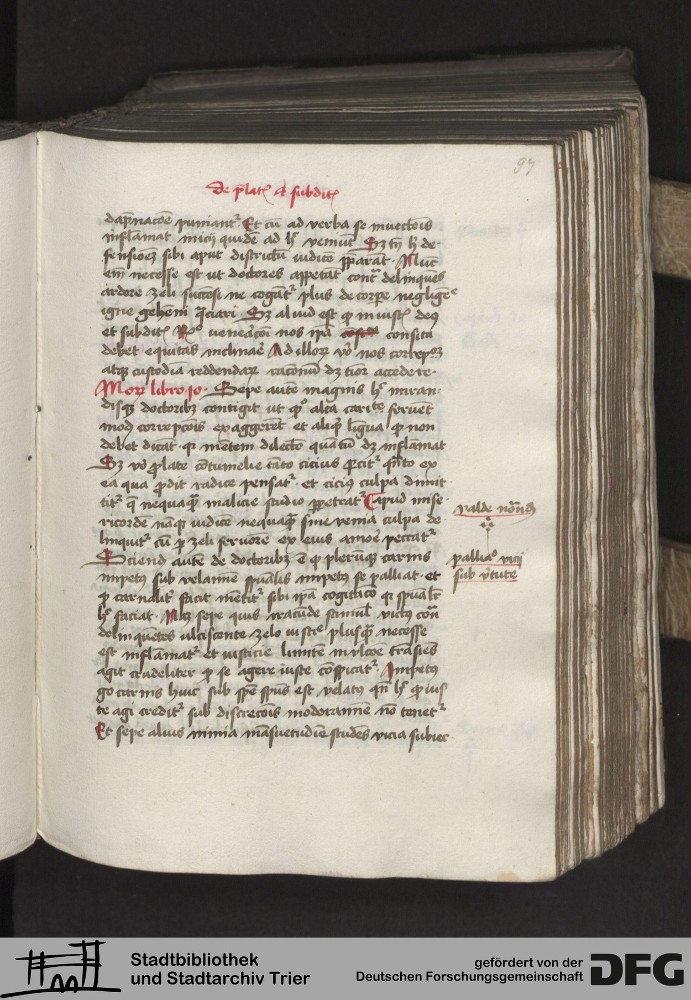 97
De p̄lat et subdit
dāpnacōe puniant᷑. Et cū ad verba se invectōis
inflāmat inicij quidē ad hͦ veniūt
fensionē sibi aput districtū iudicē p̄parāt. Nūc
em̄ necesse est ut doctores appetāt contͣ delinquētes
ardore zeli succēsi ne cogāt᷑ plus de corpe negligēc
igne gehēn̄ cͣciari. Sz aliud est qͥ iniustꝰ deꝰ
et subditꝰ venerācōi nos ip̄a consita
debet equitas inclinare Ad illoꝝ vͦ nos correpcōꝫ
atqꝫ custodia reddendaꝝ racōnū dꝫ tior accedere.
Moꝝ libro 10. Sepe autē magnis hͦ miran-
disqꝫ doctoribꝫ contigit ut qͦ alta caritͣte fervēt
modū correpcōis exaggerēt et aliqͥd līgua qͦ non
debet dicāt. qꝛ mētem dilectō quātū dꝫ inflāmat
Sz vͦ prolate cōtumelie tāto cicius parcit᷑ qͣnto ex
ea qua prodit radice pensat᷑. et ciciꝰ culpa dimit
tit᷑ que nequaqͣ malicie studio p̱petrat᷑ Capud mise-
ricordē nāqꝫ iudicē nequaqͣ sine venia culpa de
linquit᷑ cū p̱ zeli fervorē ex eius amore peccat᷑
Sciend autē de doctoribꝫ ē qͥ plerūqꝫ carnis
impetꝰ sub velamine sp̄ualis impetꝰ se palliat. et
qͦ carnalit᷑ facit mētit᷑ sibi ip̄a cogitacō qꝛ sp̄ualit᷑
hͦ faciat. Nā sepe quis iracūdie stimul victꝰ contͣ
delinquētes ulciscente zelo iusticͥe plusqͣ necesse
est inflāmat᷑ et iusticie limitē transiēs
agit crudeliter qͦ se agere iuste cōspicat᷑. Impetꝰ
go carnis huic sub spē sp̄us est velatꝰ qn̄ hͦ qͦ ius
te agi credit᷑ sub discrecōis moderamine nō tenet᷑
Et sepe alius nimia māsuetudīe studēs vicia subiec-
valde nōnd
palliatͦ vicij
sub v̄tute
Stadtbibliothek
und Stadtarchiv Trier
gefördert von der
Deutschen Forschungsgemeinschaft
DFG